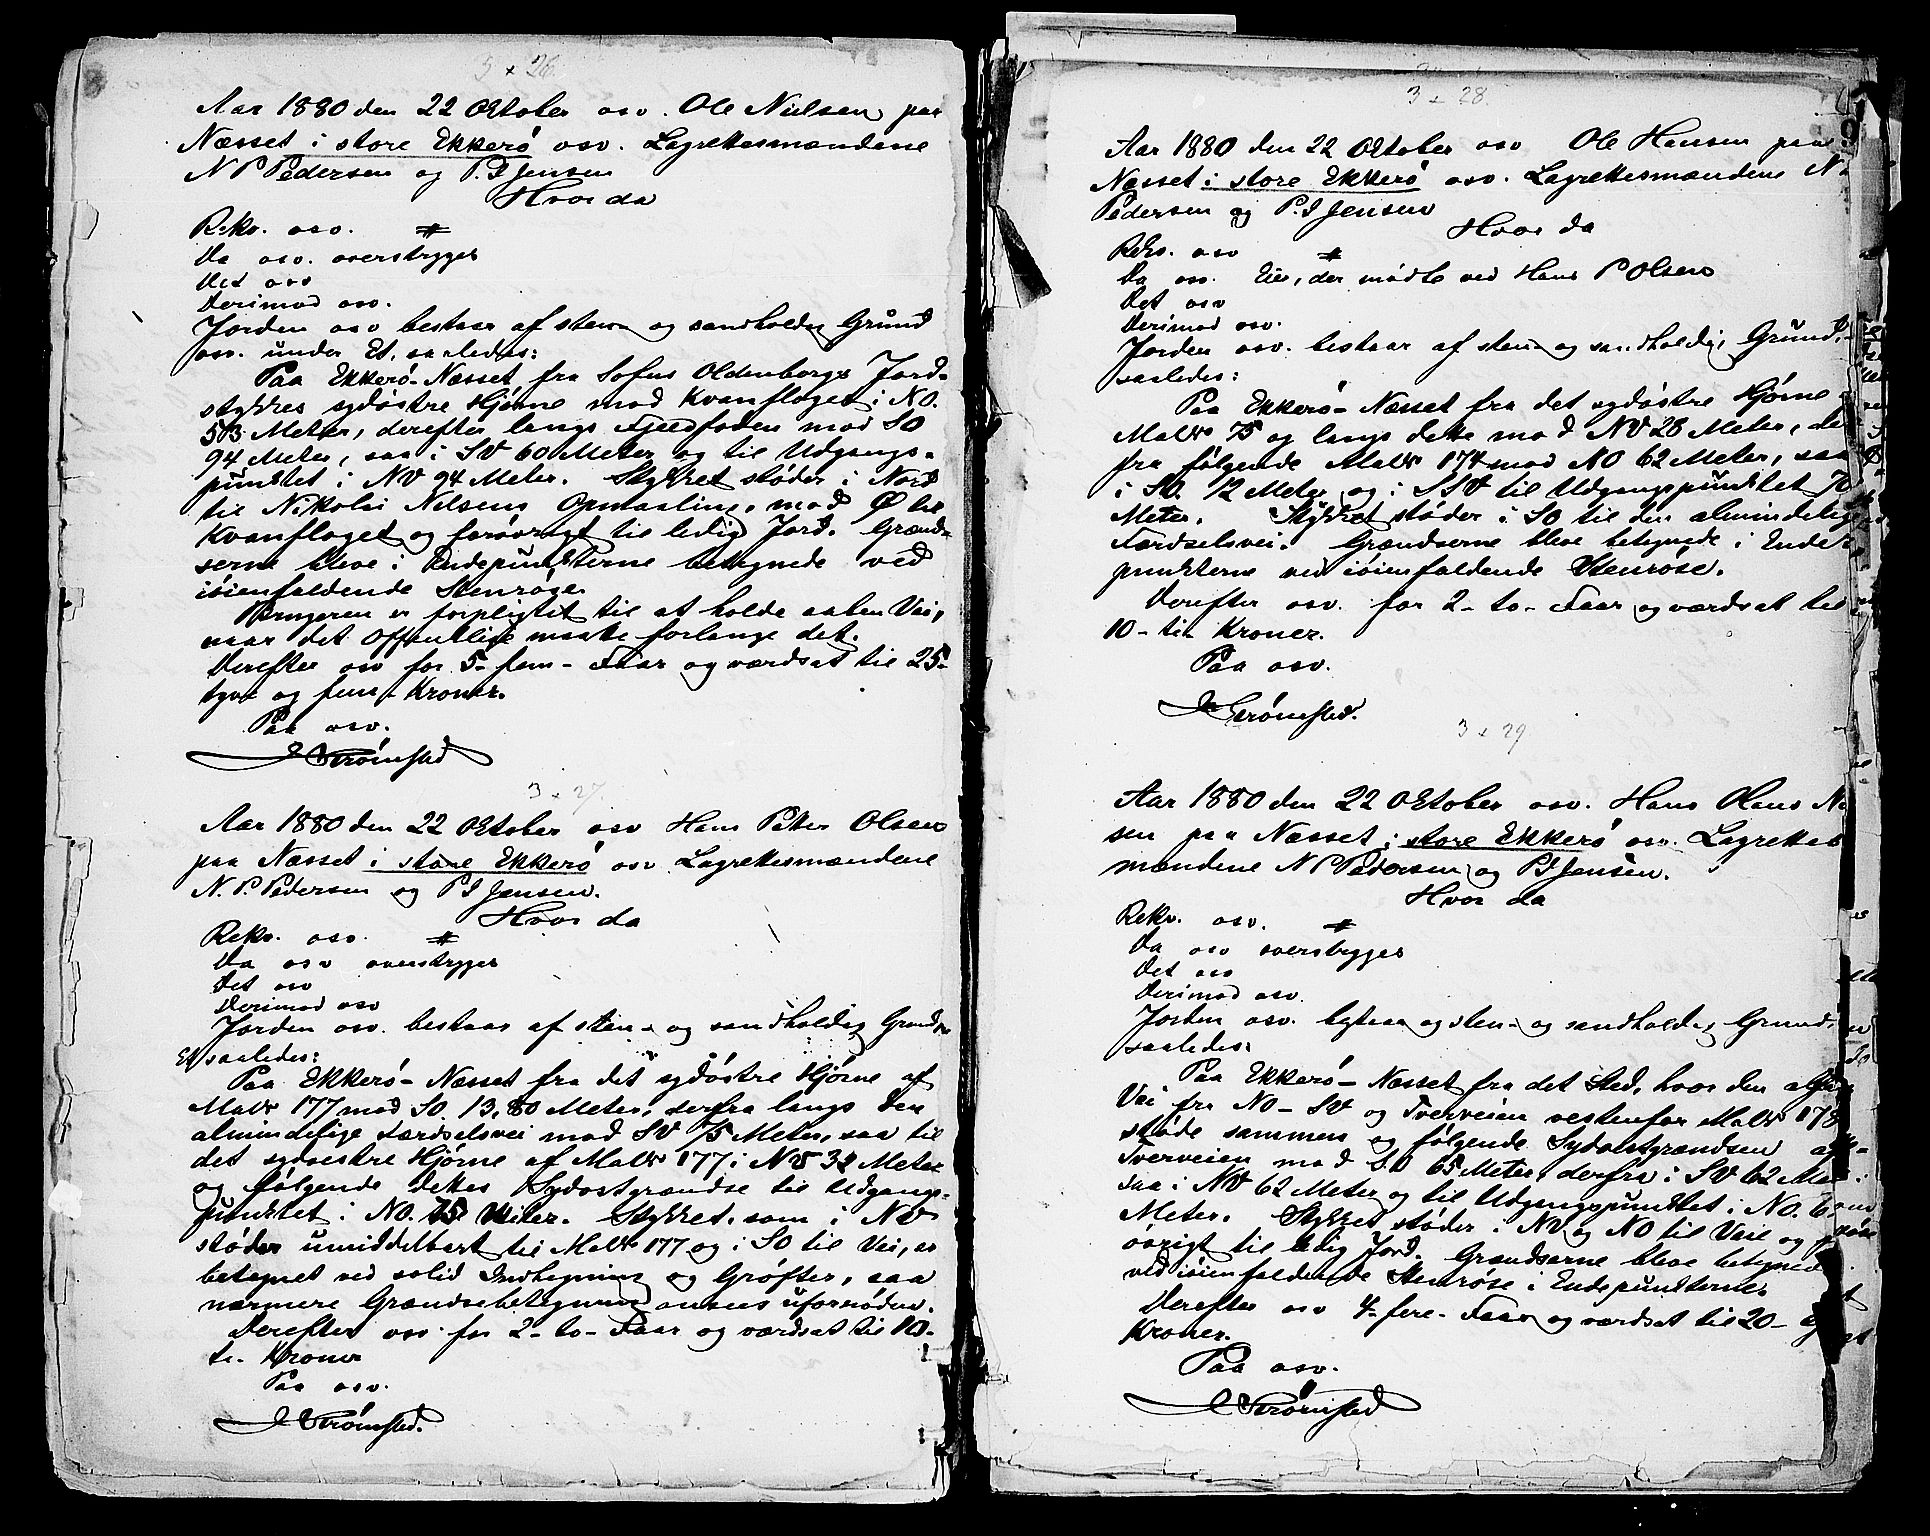 3 x 26.
Aar 1880 den 22 Oktober osv. Ole Nielsen paa
Næsset i store Ekkerø osv. Lagrettesmændene
N P Pedersen og P. I Jensen
Hvor da
Rekv. osv. #
Da osv. overstryges
Det osv
Derimod osv.
Jorden osv bestaar af sten og sandholdig Grund
osv. under Et, saaledes:
Paa Ekkerø-Næsset, fra Sofus Oldenborgs Jord-
stykkes sydøstre Hjørne mod Kvanfloget i NO.
53 Meter, derefter langs Fjeldfoden mod SO
94 Meter, saa i SV 60 Meter og til Udgangs-
punktet i NV 94 Meter. Stykket støder i Nord
til Nikolai Nilsens Opmaaling, mod Ø til
Kvanfloget og forøvrigt til ledig Jord. Grænd-
serne bleve i Endepunkterne betegnede ved
iøienfaldende Stenrøse.
Brugeren er forpligtet til at holde aaben Vei,
naar det Offentlige maatte forlange det.
Derefter osv for 5- fem- Faar og værdsat til 25-
tyve og fem- Kroner.
Paa osv.
Strømsted
3 x 27.
Aar 1880 den 22 Oktober osv Hans Peter Olsen
paa Næsset i store Ekkerø osv Lagrettesmændene
N. P. Pedersen og P I Jensen.
Hvor da
Rekv. osv. #
Da osv overstryges
Det osv
Derimod osv
Jorden osv. bestaar af sten- og sandholdig Grund
Et saaledes:
Paa Ekkerø-Næsset fra det sydøstre Hjørne af
Malnr 177 mod SO. 13,80 Meter, derfra langs den
almindelige Færdselsvei mod SV 75 Meter, saa til
det sydvestre Hjørne af Malnr 177 i NV 32 Meter
og følgende dettes Sydostgrændse til Udgangs-
punktet i NO. 75 Meter. Stykket, som i NV
støder umiddelbart til Malnr 177 og i SO til Vei, er
betegnet ved solid Indhegning og Grøfter, saa
nærmere Grændsebetegning ansees ufornøden.
Derefter osv. for 2- to- Faar og værdsat til 10-
ti- Kroner
Paa osv.
Strømsted.
3 x 28.
Aar 1880 den 22 Oktober osv Ole Hansen paa
Næsset i store Ekkerø osv. Lagrettesmændene N
Pedersen og P. I Jensen
Hvor da
Rekv. osv #
Da osv. Eier, der mødte ved Hans P Olsen
Det osv
Derimod osv.
Jorden osv. bestaar af sten- og sandholdig Grund,
saaledes:
Paa Ekkerø-Næsset fra det sydøstre Hjørne
Malnr 75 og langs dette mod NV 28 Meter, der
fra følgende Malnr 174 mod NO 62 Meter, saa
i SO. 12 Meter og i SSV til Udgangspunktet 70
Meter. Stykket støder i SO til den almindelige
Færdselsvei. Grændserne bleve betegnede i Ende
punkterne ved iøienfaldende Stenrøse.
Derefter osv. for 2- to- Faar og værdsat til
10- ti- Kroner.
Paa osv.
Strømsted.
3 x 29
Aar 1880 den 22 Oktober osv. Hans Hans
sen paa Næsset i store Ekkerø osv. Lagrettes
mændene N P Pedersen og P I Jensen.
Hvor da
Rekv. osv. #
Da osv overstryges
Det osv
Derimod osv.
Jorden osv. bestaar og sten- og sandholdig Grund,
saaledes:
Paa Ekkerø-Næsset fra det Sted, hvor den
Vei fra NO-SV og Tverveien vestenfor Malnr 178
støde sammen og følgende Sydostgrændsen af
Tverveien mod SO 65 Meter, derfra i SV 62 Me
saa i NV 62 Meter og til Udgangspunktet i NO. 6
Meter. Stykket støder i NV og NO til Veie og
øvrigt til ledig Jord. Grændserne bleve betegnede
ved iøienfaldende Stenrøse i Endepunkterne.
Derefter osv 4- fire- Faar og værdsat til 20-
Kroner.
Paa osv.
Strømsted